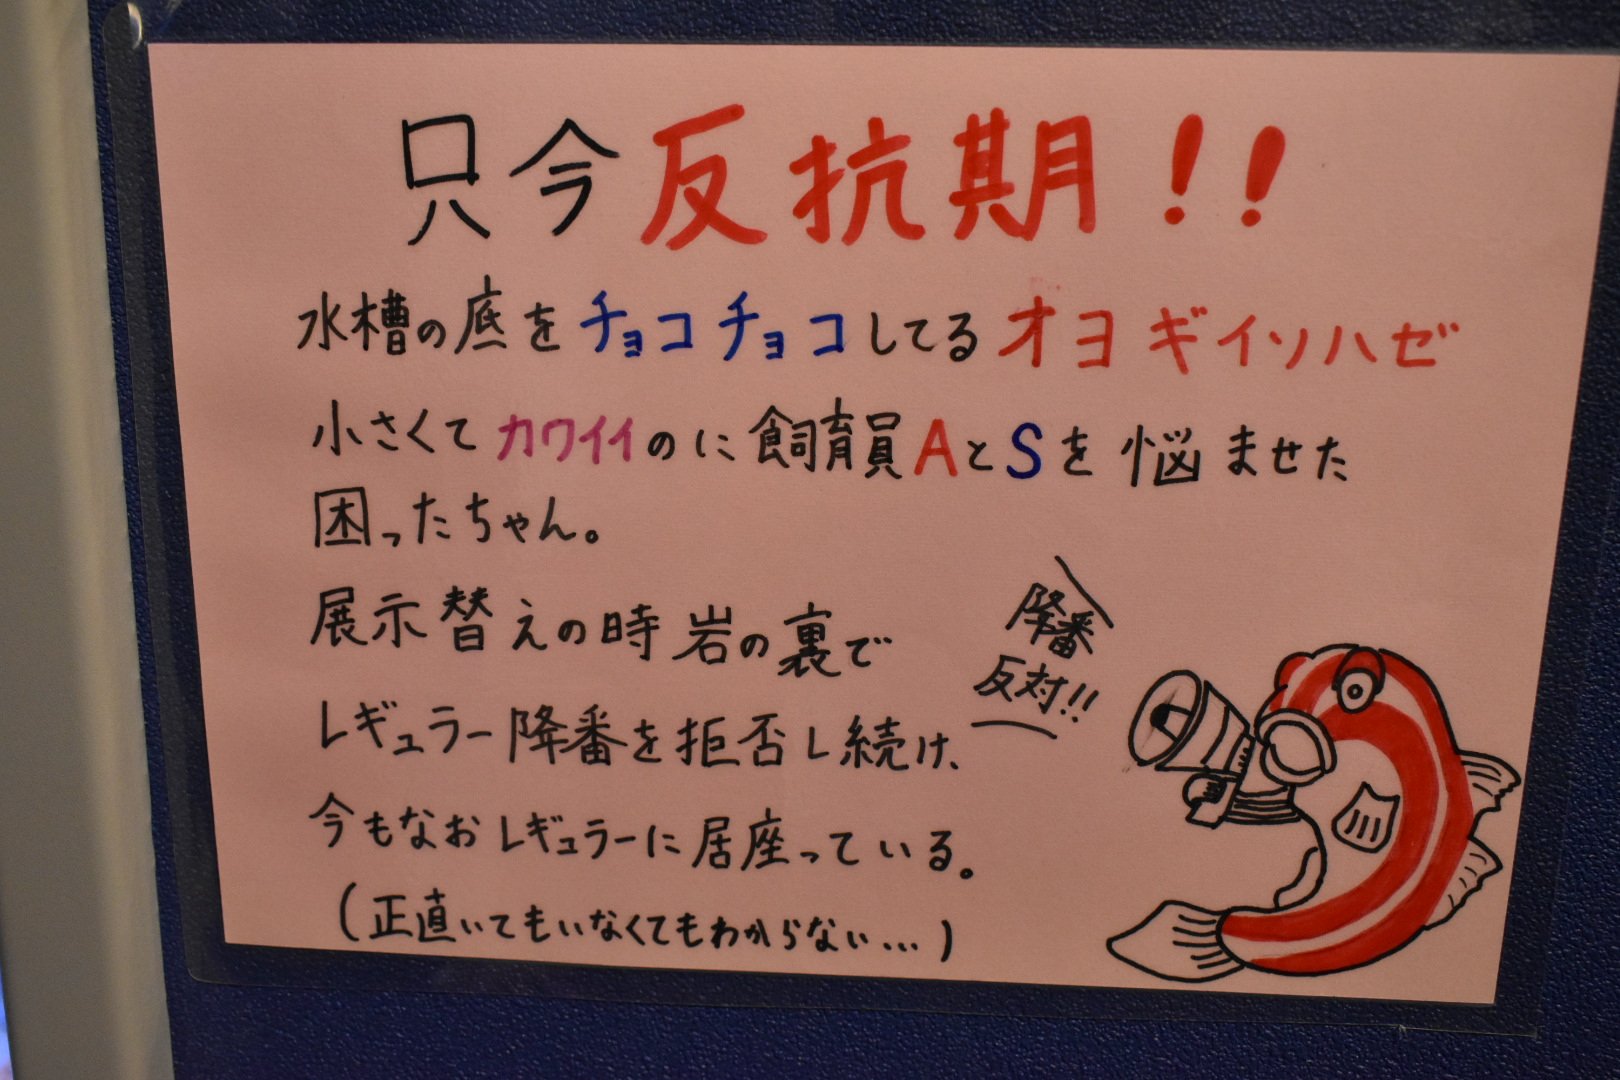 只今反抗期!!
水槽の底をチョコチョコしてるオヨギイソハゼ
小さくてカワイイのに飼育員AとSを悩ませた
困ったちゃん。
展示替えの時岩の裏で
レギュラー降番を拒否し続け、
今もなおレギュラーに居座っている。
(正直いてもいなくてもわからない…)
降番
反対!!